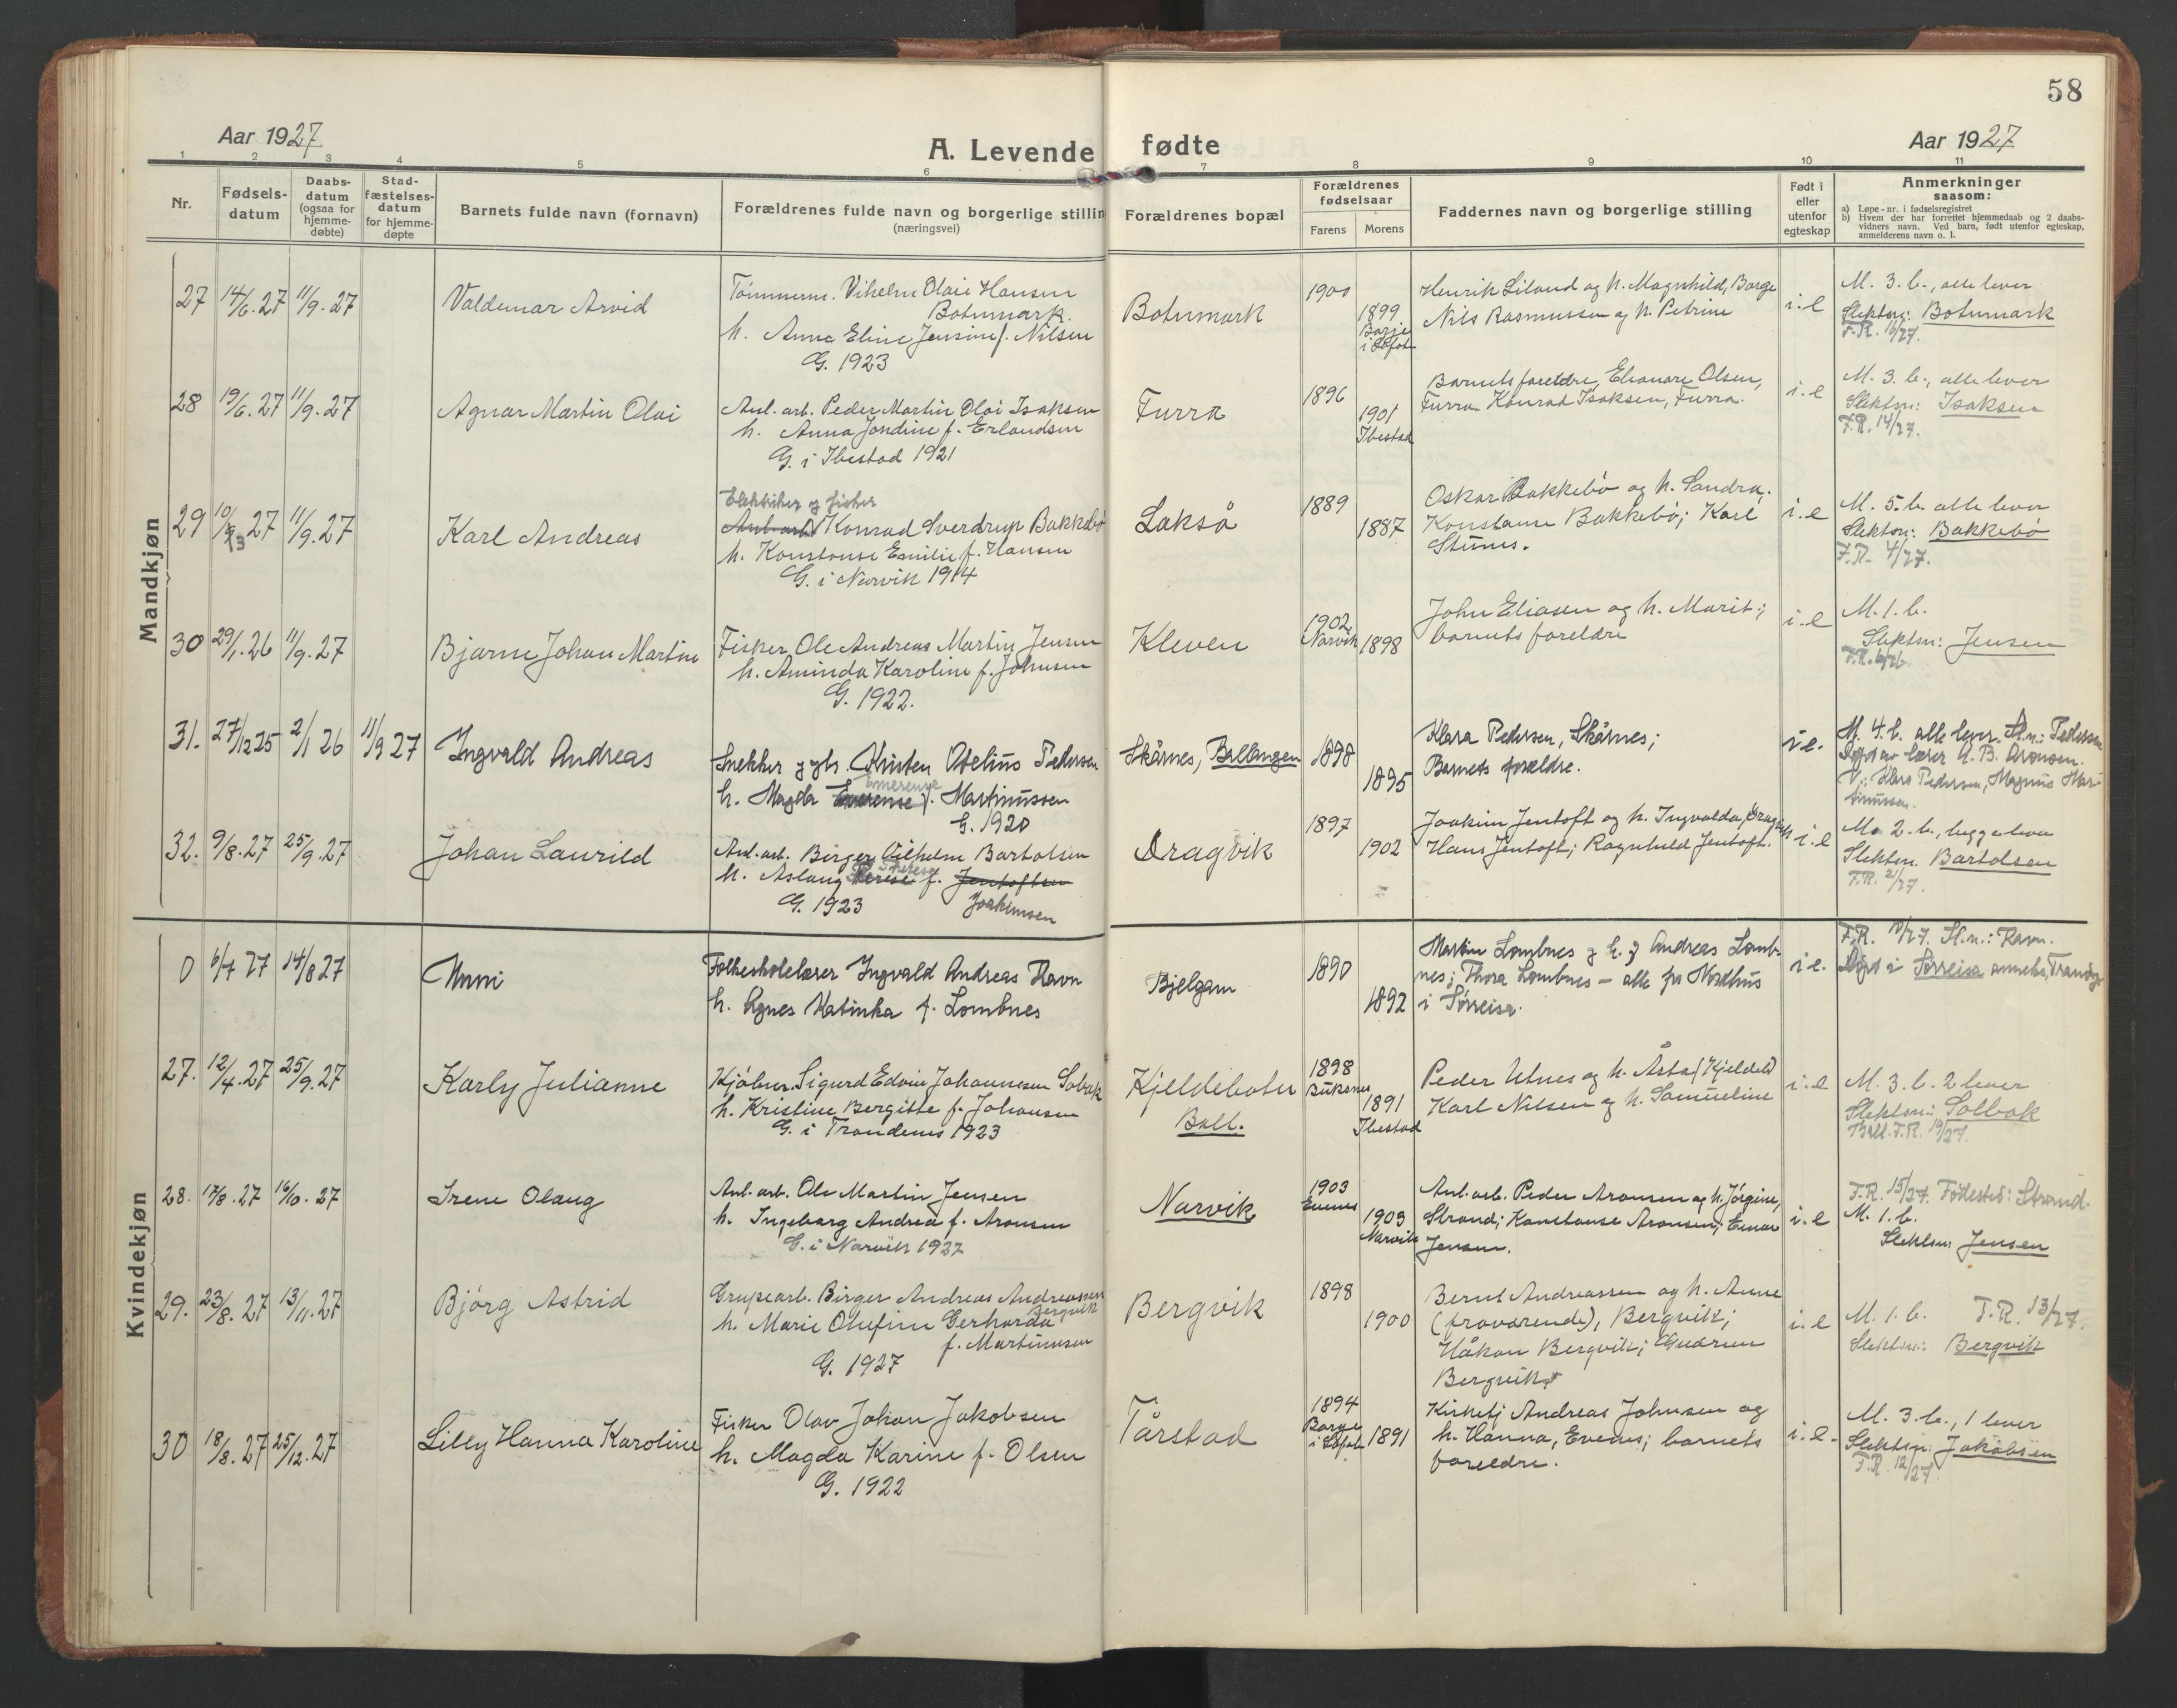 58
Aar 1927
A. Levende fødte
Aar 1927
1 2 3 4 5 6 7 8 9 10 11
Nr.
Fødsels-
datum
Daabs-
datum
(ogsaa for
hjemme-
døbte)
Stad-
fæstelses-
datum
for hjemme-
døpte
Barnets fulde navn (fornavn)
Forældrenes fulde navn og borgerlige stillin
(næringsvei)
Forældrenes bopæl
Forældrenes
fødselsaar
Farens
Morens
Faddernes navn og borgerlige stilling
Født i
eller
utenfor
egteskap
Anmerkninger
saasom:
a) Løpe-nr. i fødselsregistret
b) Hvem der har forrettet hjemmedaab og 2 daabs-
vidners navn. Ved barn, født utenfor egteskap,
anmelderens navn o. l.
Mandkjøn
27 14/6.27 11/9.27
Valdemar Arvid
Tømmerm. Vihelm Olaie Hansen
Botnmark.
h. Anna Eline Jensine f. Nilsen
G. 1923
Botnmark
1900
1899
Borje
i Lofot
Henrik Liland og h. Magnhild, Borge
Nils Rasmussen og h. Petrine
i.e
M. 3. b., alle lever
Slektsn: Botnmark
F.R. 16/27.
28 19/6.27 11/9.27
Agnar Martin Olai
Anl. arb. Peder Martin Olai Isaksen
h. Anna Jondine f. Erlandsen
G. i Ibestad 1921
Furra
1896
1901
Ibestad
Barnets foreldre, Eleonore Olsen,
Furra. Konrad Isaksen, Furra.
i.e
M. 3. b., alle lever
Slektsn: Isaksen
F.R. 14/27.
29 10/3 27 11/9.27
Karl Andreas
Elektriker og fisker
Anl. arb. Konrad Sverdrup Bakkebø
h. Konstanse Emilie f. Hansen
G. i Narvik 1914
Lakså
1889
1887
Oskar Bakkebø og h. Sandra.
Konstanse Bakkebø; Karl
i.e
M. 5. b. alle lever
Slektsn: Bakkebø
F.R. 4/27.
30 29/1.26 11/9.27
Bjarne Johan Martin
Fisker Ole Andreas Martin Jensen
h. Aminda Karoline f. Johnsen
G. 1922.
Kleven
1902
Narvik
1898
John Eliasen og h. Marit;
barnets foreldre
i.e
M. 1. b.
Slektsn: Jensen
F.R. 6/26.
31. 27/12 25 2/1 26 11/9 27
Ingvald Andreas
Snekker og gbr. Kristen Otelius Pedersen
Emerense
h. Magda Everense f. Martinussen
G. 1920
Skårnes, Ballangen
1898
1895
Klara Pedersen, Skårnes;
Barnets foreldre.
i e.
M. 4. b. alle lever. Sl.n.: Pedersen
Døpt av lærer A. B. Aronsen.
V.: Klara Pedersen, Magnus Mar-
tinussen.
32. 9/8.27 25/9.27
Johan Laurild
Anl. arb. Birger Vilhelm Bartolsen
Therese
h. Aslaug Terese f. Jentoftsen
G. 1923 Joakimsen
Dragvik
1897
1902
Joakim Jentoft og h. Ingvalda, Dragvik
Hans Jentoft; Ragnhild Jentoft.
i.e
M. 2. b., begge lever
Slektsn. Bartolsen
F.R. 21/27.
Kvindekjøn
0 6/7 27 14/8 27
Unni
Folkeskolelærer Ingvald Andreas Ravn
h. Agnes Katinka f. Lombnes
Bjelgam
1890
1892
Martin Lombnes og h. og Andreas Lomb-
nes; Thora Lombnes – alle fra Nordhus
i Sørreisa.
i e.
F.R. 10/27. Sl.n.: Ravn.
Døpt i Sørreisa anneks, Tranøy
27. 12/4.27 25/9.27
Karly Julianne
Kjøbm. Sigurd Edvin Johannesen Solbak
h. Kristine Bergitte f. Johansen
G. i Trondenes 1923
Kjeldebotn
Ball.
1898
Buksnes
1891
Ibestad
Peder Utnes og h. Åsta (Kjeldeb)
Karl Nilsen og h. Samueline
i.e
M. 3. b. 2 lever
Slektsn: Solbak
Ball. F.R. 19/27.
28. 17/8.27 16/10.27
Irene Olaug
Anl. arb. Ole Martin Jensen
h. Ingeborg Andrea f. Aronsen
G. i Narvik 1927
Narvik
1903
Evenes
1903
Narvik
Anl. arb. Peder Aronsen og h. Jørgine,
Strand; Konstanse Aronsen; Einar
Jensen.
i.e
F.R. 15/27. Fødested: Strand.
M. 1. b.
Slektsn: Jensen
29. 23/8.27 13/11.27
Bjørg Astrid
Grupearb. Birger Andreas Andreassen
Bergvik
h. Marie Olufine Gerharda
f. Martinusen
G. 1927
Bergvik
1898
1900
Bernt Andreassen og h. Anne
(fraværende), Bergvik;
Håkon Bergvik; Gudrun
Bergvik
i.e
M. 1. b. F.R. 13/27.
Slektsn: Bergvik
30 18/8.27 25/12.27
Lilly Hanna Karoline
Fisker Olav Johan Jakobsen
h. Magda Karine f. Olsen
G. 1922
Tårstad
1894
Borge
i Lofot
1891
Kirketj Andreas Johnsen og
h. Hanna, Evenes; barnets
foreldre.
i.e.
M. 3. b., 1 lever
Slektsn: Jakobsen
F.R. 12/27.